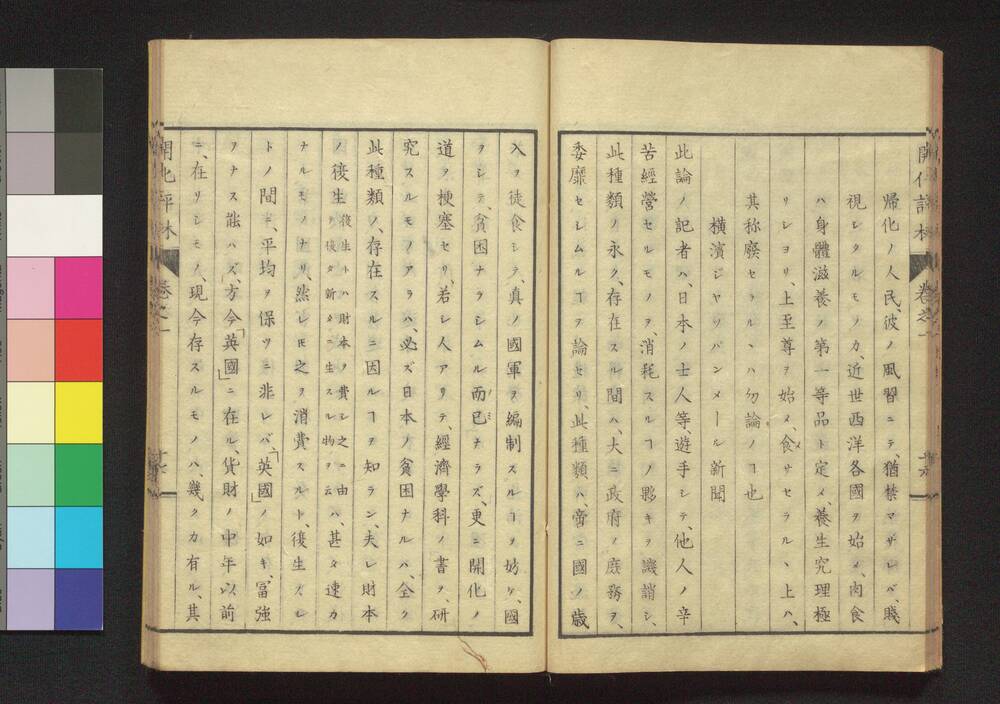 帰化ノ人民、彼ノ風習ニテ、猶禁マザレバ、賤
視シタルモノカ、近世西洋各國ヲ始メ、肉食
ハ身體滋養ノ第一等品ト定メ、養生究理極
リシヨリ、上至尊ヲ始メ、食サセラル、上ハ、
其称廢セラル、ハ勿論ノヿ也
横濱ジヤツパンメール新聞
此論ノ記者ハ、日本ノ士人等、遊手シテ、他人ノ辛
苦經營セルモノヲ、消耗スルヿノ夥キヲ譏誚シ、
此種類ノ永ク、存在スル間ハ、大ニ政府ノ庶務ヲ、
委靡セシムルヿヲ論セリ、此種類ハ啻ニ國ノ歳
入ヲ徒食シテ、真ノ國軍ヲ編制スルヿヲ妨ケ、國
ヲシテ、貧困ナラシムル而已ナラズ、更ニ開化ノ
道ヲ梗塞セリ、若シ人アリテ、經濟學科ノ書ヲ、研
究スルモノアラハ、必ズ日本ノ貧困ナルハ、全ク
此種類ノ、存在スルニ因ルヿヲ知ラン、夫レ財本
ノ後生後生トハ財本ノ費シ之ニ由テ後タ新タニ生スル物ヲ云ハ、甚タ速カ
ナルモノナリ、然レ𪜈之ヲ消費スルト、後生スル
トノ間ニ、平均ヲ保ツニ非レバ、「英國」ノ如キ、冨強
ヲナス能ハズ、方今「英國」ニ在ル、貨財ノ中年以前
ニ、在リシモノ、現今存スルモノハ、幾クカ有ル、其
開化評林
卷之一